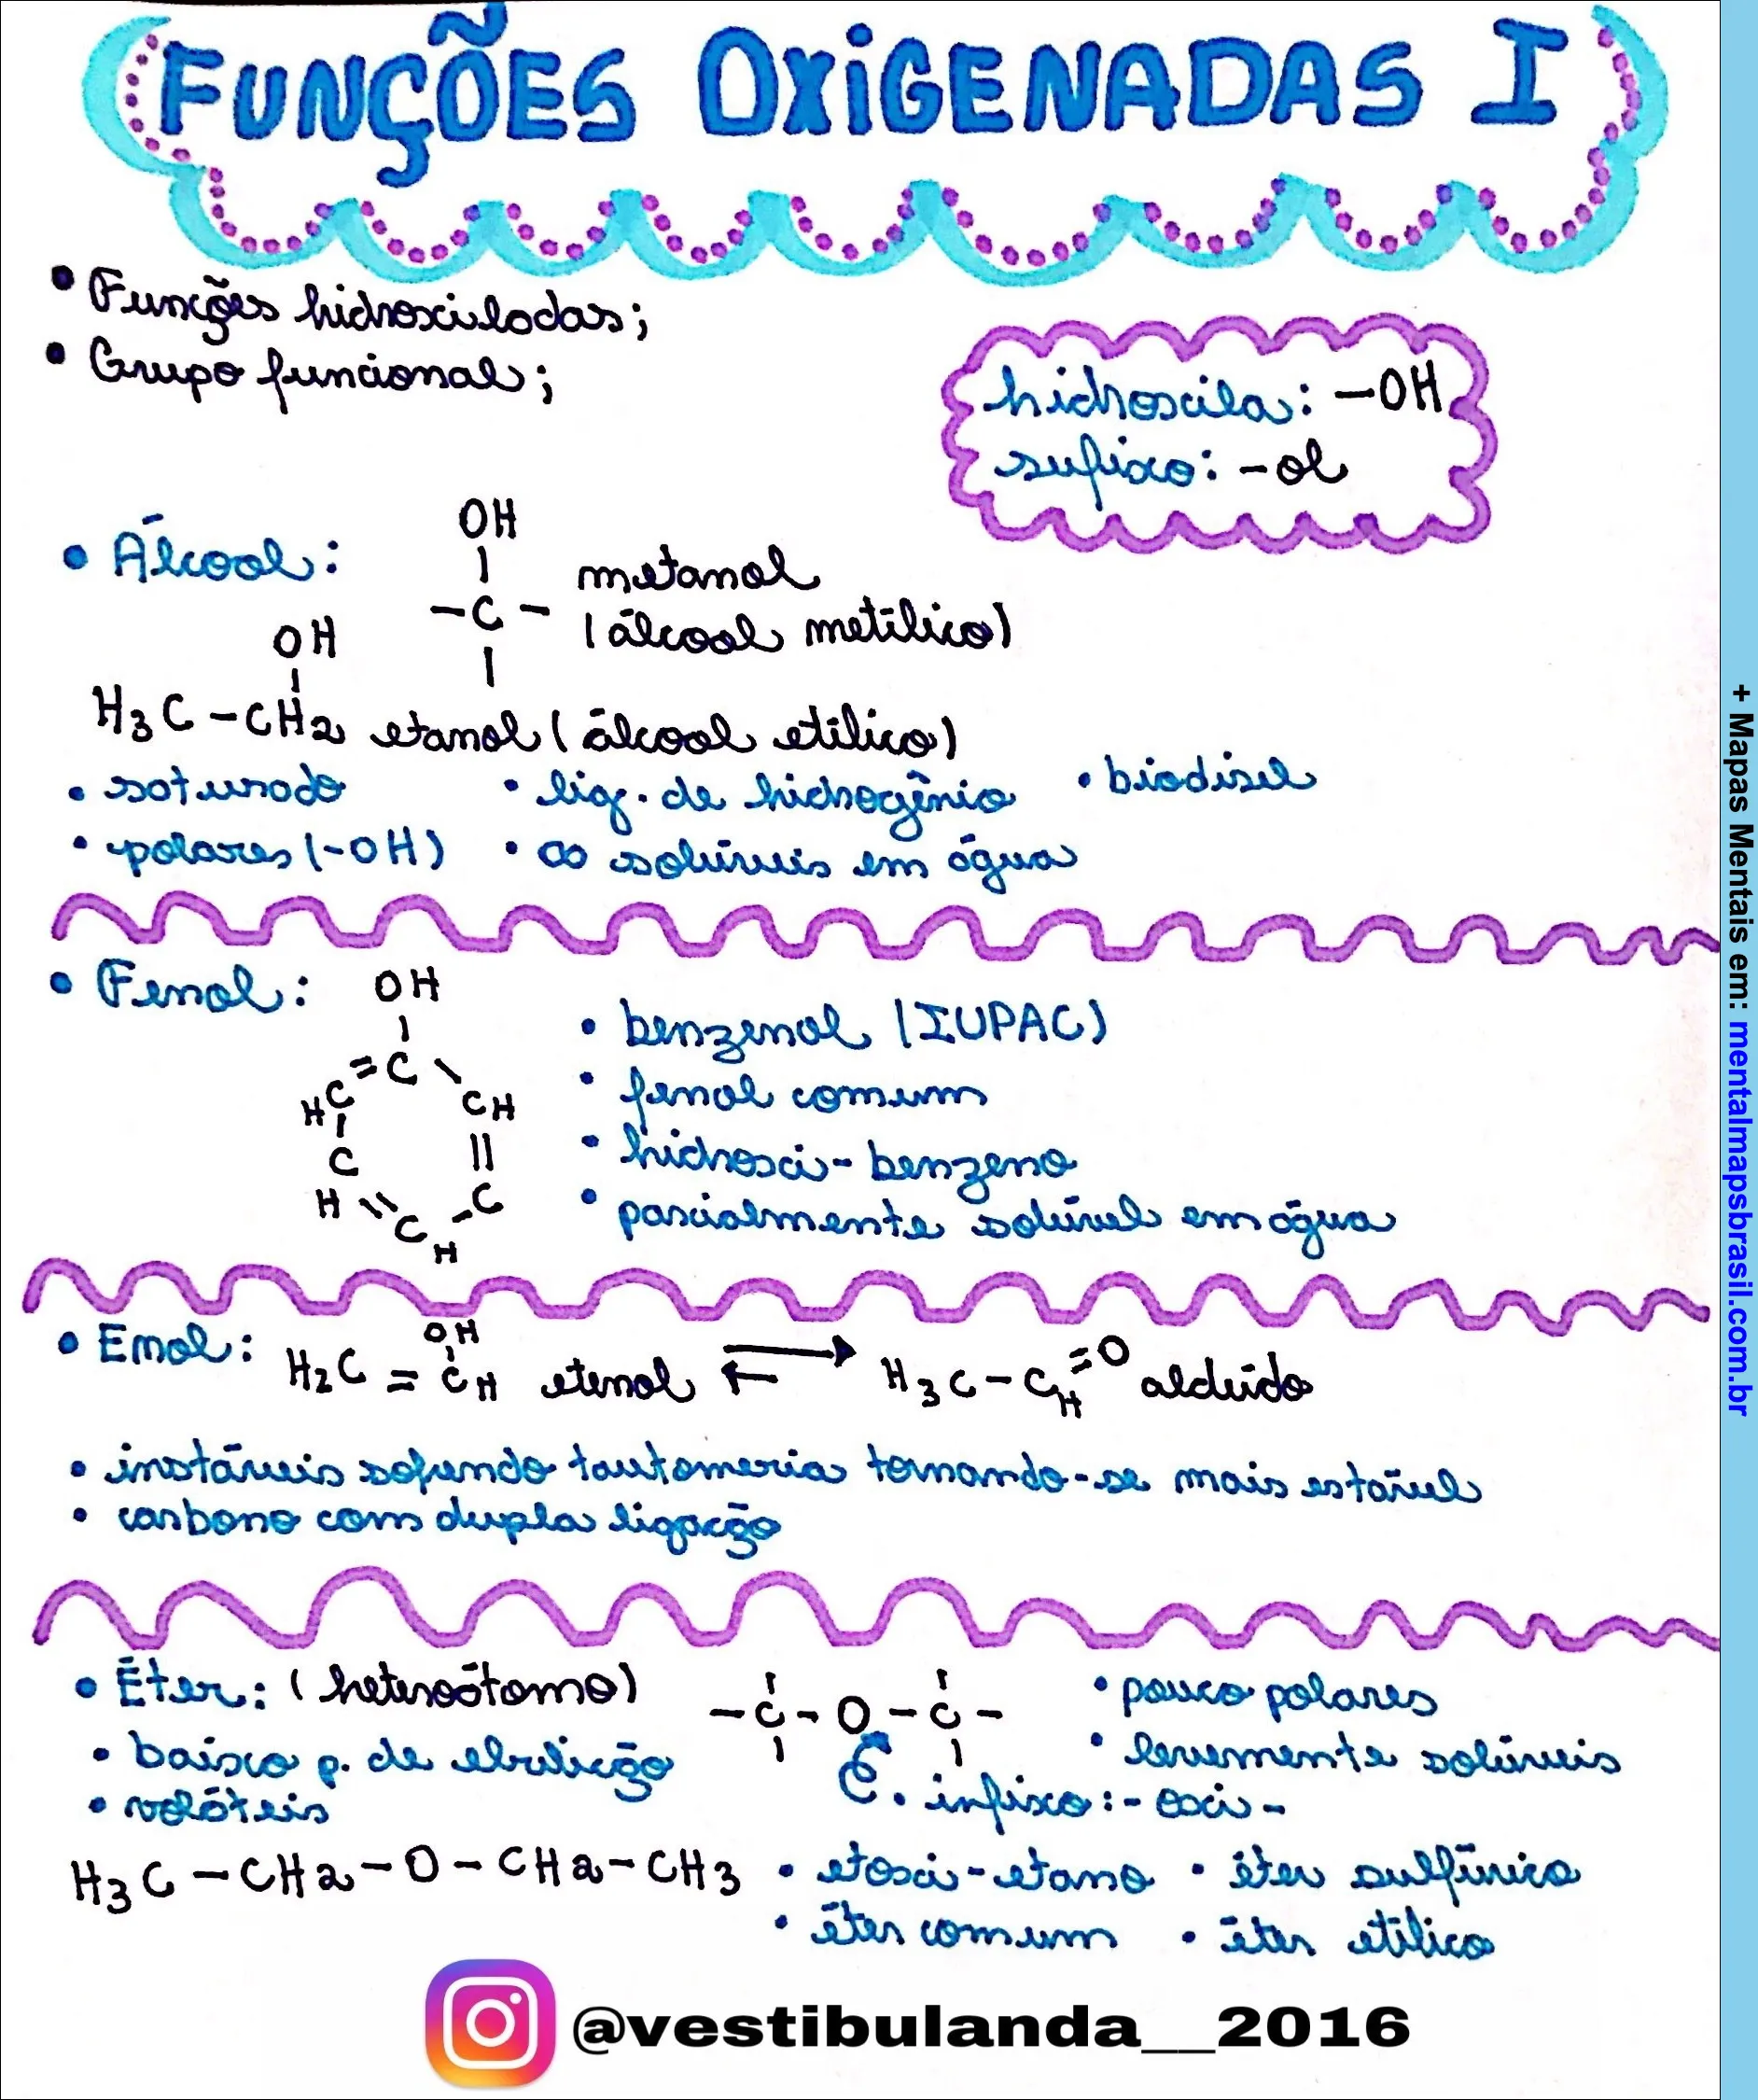 FUNÇÕES OXIGENADAS I
• Funções hidroxiladas;
• Grupo funcional;
hidroxila: -OH
sufixo: -ol
• Álcool:
OH
-C-
metanol
(álcool metílico)
OH
H3C-CH2 etanol (álcool etílico)
• saturado • lig. de hidrogênio • biodisel
• polares (-OH) • ∞ solúveis em água
• Fenol:
OH
C
HC = C \ CH
C H || C
C H
• benzenol (IUPAC)
• fenol comum
• hidroxi-benzeno
• parcialmente solúvel em água
• Enol:
OH
H2C = CH etenol ⇄ H3C-CH=O aldeído
• instáveis sofrendo tautomeria tornando-se mais estável
• carbono com dupla ligação
• Éter: (heteroátomo) -C-O-C- • pouco polares
• baixo p. de ebulição • levemente solúveis
• voláteis • infixo: -oxi-
H3C-CH2-O-CH2-CH3 • etoxi-etano • éter sulfúrico
• éter comum • éter etílico
@vestibulanda__2016
+ Mapas Mentais em: mentalmapsbrasil.com.br